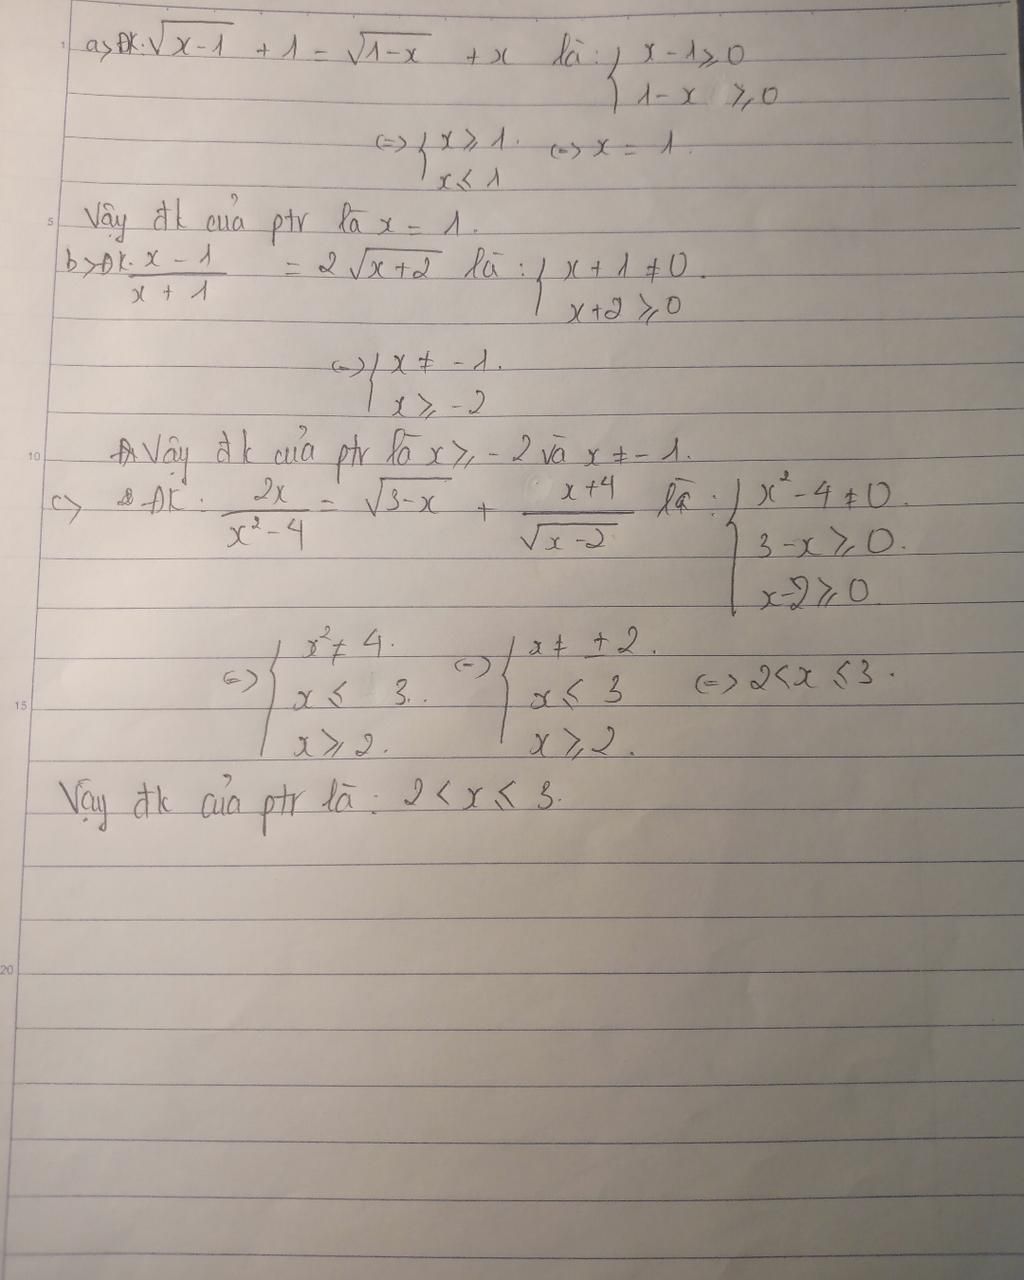 a> ĐK: √(x-1) + 1 = √(1-x) + x là: { x - 1 ⩾ 0
1 - x ⩾ 0
<=> { x ⩾ 1. <=> x = 1.
x ⩽ 1
Vậy đk của ptr là x = 1.
b> ĐK: (x - 1)/(x + 1) = 2√(x+2) là: { x + 1 ≠ 0.
x+2 ⩾ 0
<=> { x ≠ -1.
x ⩾ -2
Vậy đk của ptr là x ⩾ -2 và x ≠ -1.
c> ĐK: 2x/(x²-4) = √(3-x) + (x+4)/√(x-2) là: { x² - 4 ≠ 0.
3 - x ⩾ 0.
x-2 ⩾ 0
<=> { x² ≠ 4. <=> { x ≠ ±2.
x ⩽ 3. x ⩽ 3 <=> 2 < x ⩽ 3.
x ⩾ 2. x ⩾ 2.
Vậy đk của ptr là: 2 < x ⩽ 3.
1
5
10
15
20